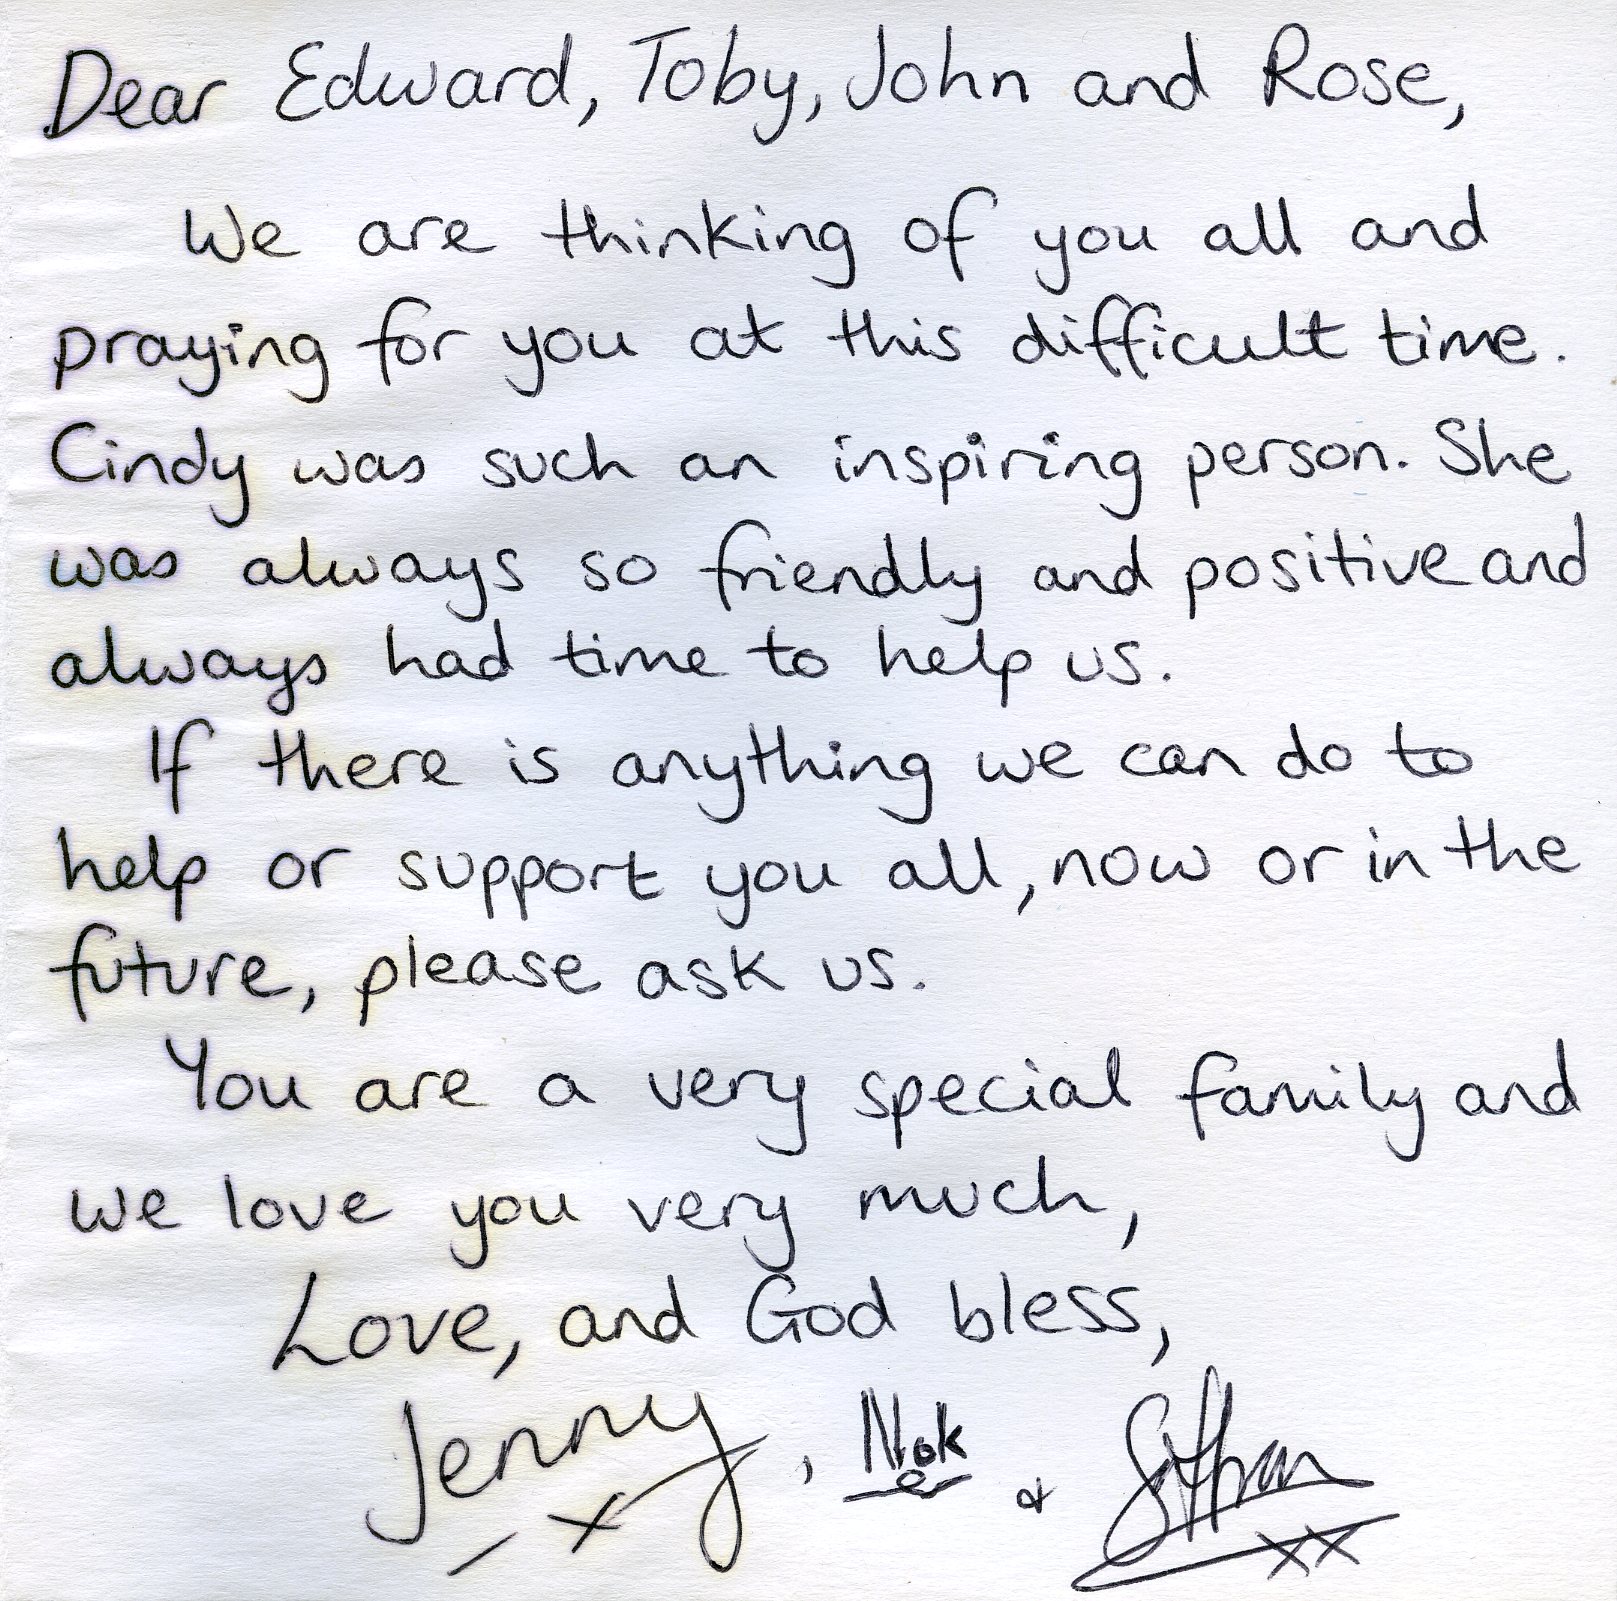 Dear Edward, Toby, John and Rose,
We are thinking of you all and
praying for you at this difficult time.
Cindy was such an inspiring person. She
was always so friendly and positive and
always had time to help us.
If there is anything we can do to
help or support you all, now or in the
future, please ask us.
You are a very special family and
we love you very much,
Love, and God bless,
Jenny, Nok &
x xx